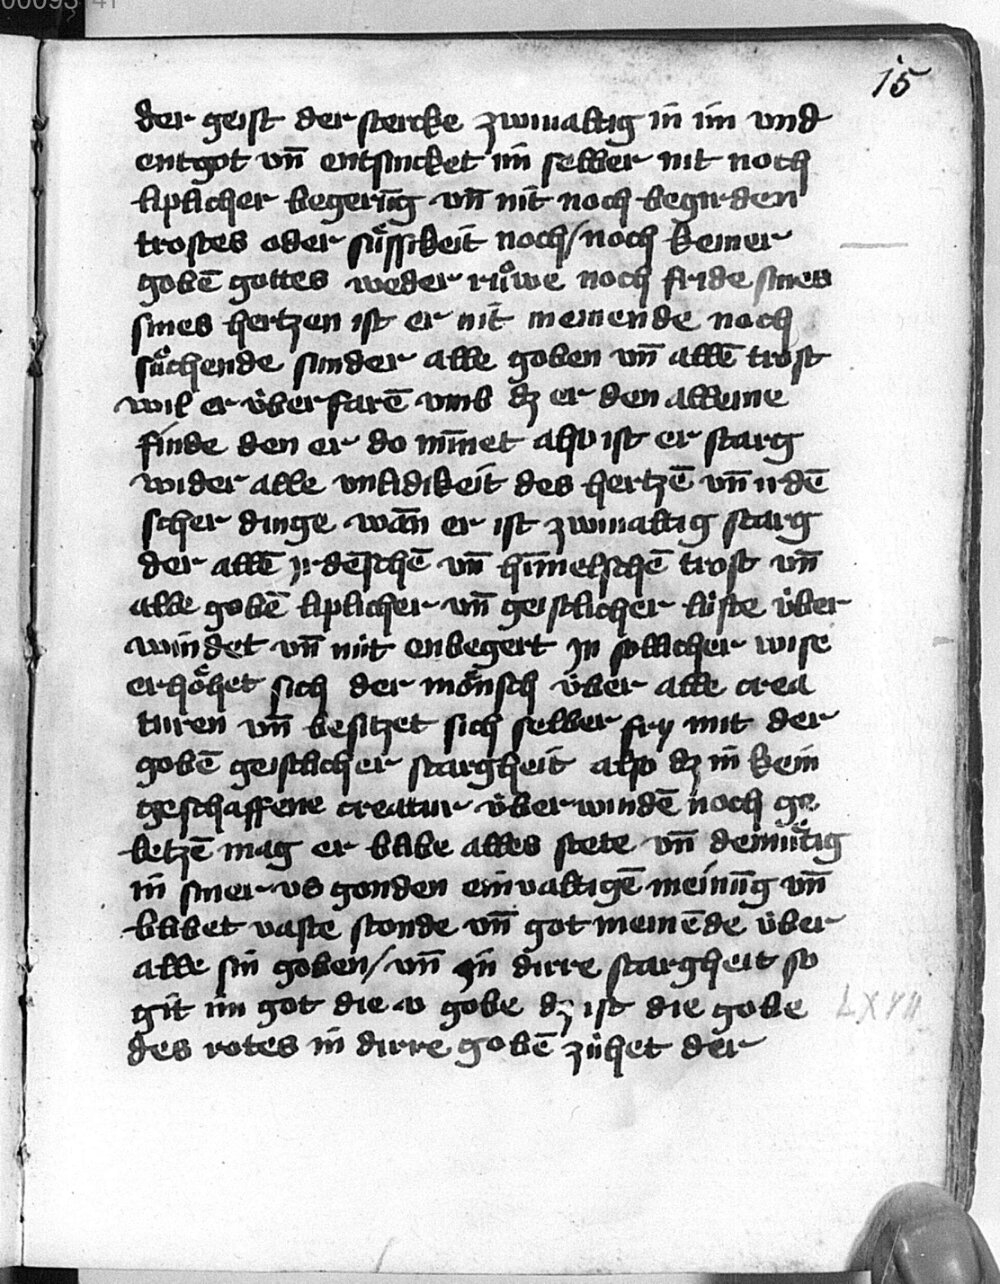 15
der geist der stercke zwiualtig in im vnd
entgot vn̄ entsincket im selber nit noch
liplicher begerūg vn̄ nit noch begirden
trostes oder suͤssikeit noch / noch keiner
gobē gottes weder ruͦwe noch fride sines
sines hertzen ist er nit meinende noch
suͤchende sunder alle goben vn̄ allē trost
wil er v̈berfarē vmb dz er den alleine
finde den er do mīnet also ist er starg
wider alle vnlidikeit des hertzē vn̄ irdē
scher dinge wān er ist zwiualtig starg
der allē jrdēschē vn̄ hīmelschē trost vn̄
alle gobē liplicher vn̄ geistlicher lüste v̈ber
windet vn̄ nüt enbegert jn sollicher wise
erhoͤhet sich der moͤnsch v̈ber alle crea
turen vn̄ besitzet sich selber fry mit der
gobē geistlicher stargheit also dz in kein
geschaffene creatur v̈berwindē noch ge
letzē mag er blibe alles stete vn̄ demuͤtig
in siner vs gonden einualtigē meinūg vn̄
blibet vaste stonde vn̄ got meinēde v̈ber
alle sin goben / vn̄ in dirre stargheit so
git im got die v gobe dz ist die gobe
des rotes in dirre gobē zühet der